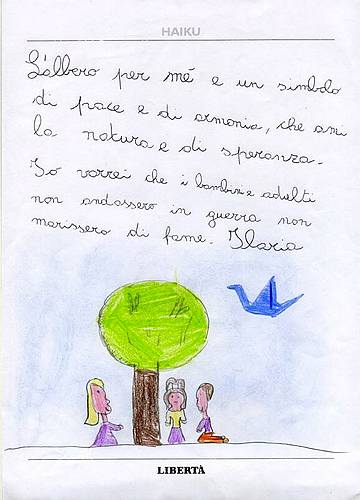 HAIKU
L'albero per mé e un simbolo
di pace e di armonia, che ami
la natura e di speranza.
Io vorrei che i bambini e adulti
non andassero in guerra non
morissero di fame. Ilaria
LIBERTÀ